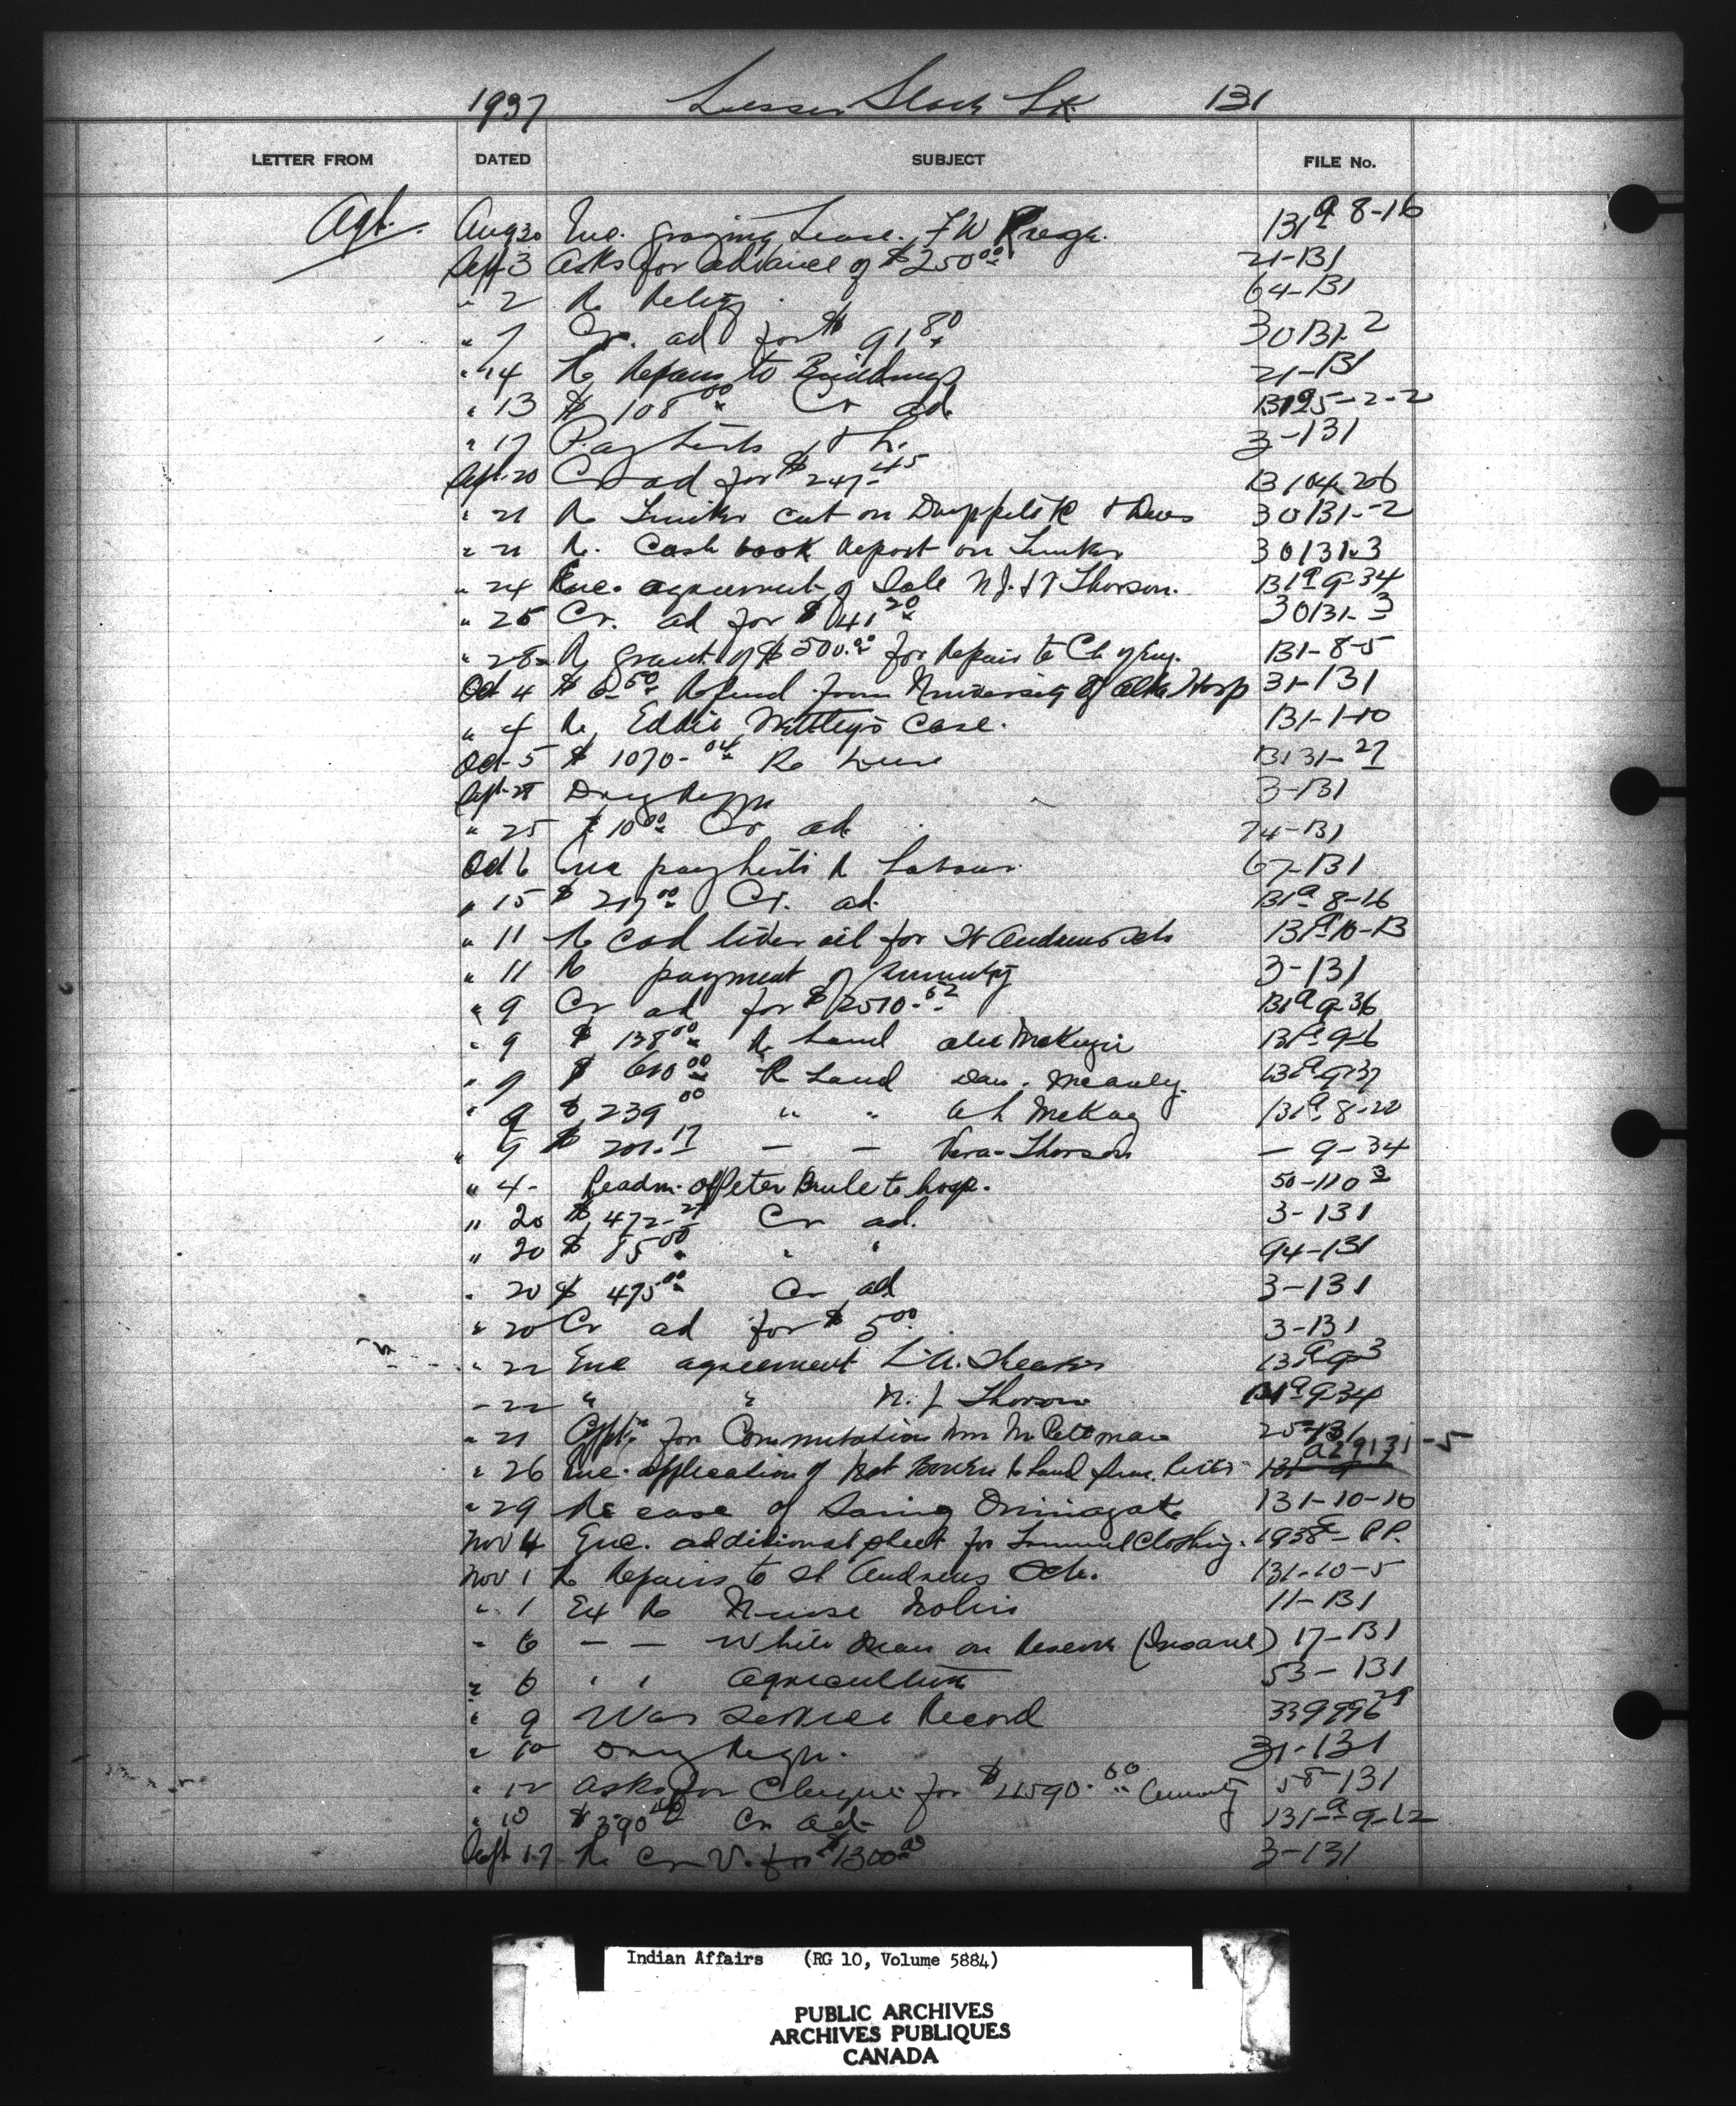 1937 Lesser Slave Lk 131
LETTER FROM DATED SUBJECT FILE No.
Agt. Aug 30 Enc. grazing Lease. F W 131ª 8-16
Sept 3 Asks for advance of $250.00 21-131
" 2 Re Relief 64-131
" 7 Cr. ad for $ 91.80 30131-2
" 14 Re Repairs to Buildings 21-131
" 13 $ 108.00 Cr ad.
" 17 Pay Lists 3-131
Sept 20 Cr ad for $247.45
" 21 Re Timber cut on Driftpile R 30131-2
" 21 Re. Cash book Report on Timber 30131-3
" 24 Enc. agreement of Sale N.J. Thorson. 131ª 9-34
" 25 Cr. ad for $ 41.20 30131-3
" 28 Re grant of $500.00 for Repair to Ch of Eng. 131-8-5
Oct 4 $ 6.50 Refund from University of Alta Hosp 31-131
" 4 Re Eddie case. 131-1-10
Oct 5 $ 1070.04 Re 13131-27
Sept 28 3-131
" 25 $ 10.00 Cr ad. 74-131
Oct 6 Enc pay lists Re Labour 67-131
" 15 $ 217.00 Cr. ad. 131ª 8-16
" 11 Re Cod liver oil for St Andrews Sch 131ª 10-13
" 11 Re payment of Annuity 3-131
" 9 Cr ad for $2510.62 131ª 9-36
" 9 $ 138.00 Re Land Alex McKenzie 131ª 9-6
" 9 $ 610.00 Re Land Dan. 131ª 9-37
" 9 $ 239.00 " " A L McKay 131ª 8-20
" 9 $ 201.17 — — Vera Thorson — 9-34
" 4 - Readm. of Peter Brule to hosp. 50-110 3
" 20 $ 472.27 Cr ad. 3-131
" 20 $ 85.00 " " 94-131
" 20 $ 475.00 Cr ad 3-131
" 20 Cr ad for $ 5.00 3-131
" 22 Enc agreement L.A. 131ª 9-3
" 22 " " N. J Thorson 131ª 9-34
" 21 Appl'n for Commutation Mrs M. 25-131
" 26 Enc. application of a29131-5
" 29 Re case of 131-10-10
Nov 4 Enc. additional sheet for Clothing. 1938
Nov 1 Re Repairs to St Andrews Sch. 131-10-5
" 1 Ex Re Nurse 11-131
" 6 — — White Man on Reserve (Insane) 17-131
" 6 " " Agriculture 53-131
" 9 War Service Record
" 10 31-131
" 12 Asks for Cheque for $ Annuity 58-131
" 10 $390 Cr ad- 131-ª 9-12
Sept 17 Re Cr V. for $1300.00 3-131
Indian Affairs (RG 10, Volume 5884)
PUBLIC ARCHIVES
ARCHIVES PUBLIQUES
CANADA